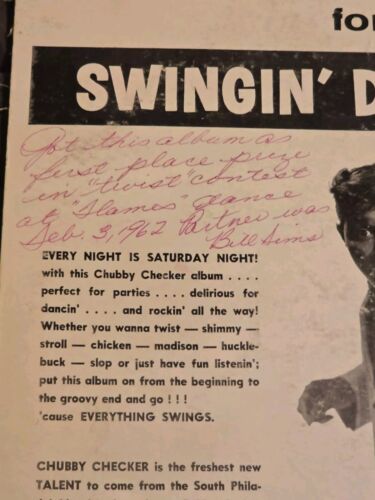 for
SWINGIN' D
Got this album as
first place prize
in "twist" contest
at "Flames" dance
Feb. 3, 1962 Partner was
Bill Sims
EVERY NIGHT IS SATURDAY NIGHT!
with this Chubby Checker album . . . .
perfect for parties . . . . delirious for
dancin' . . . . and rockin' all the way!
Whether you wanna twist — shimmy —
stroll — chicken — madison — huckle-
buck — slop or just have fun listenin';
put this album on from the beginning to
the groovy end and go ! ! !
'cause EVERYTHING SWINGS.
CHUBBY CHECKER is the freshest new
TALENT to come from the South Phila-